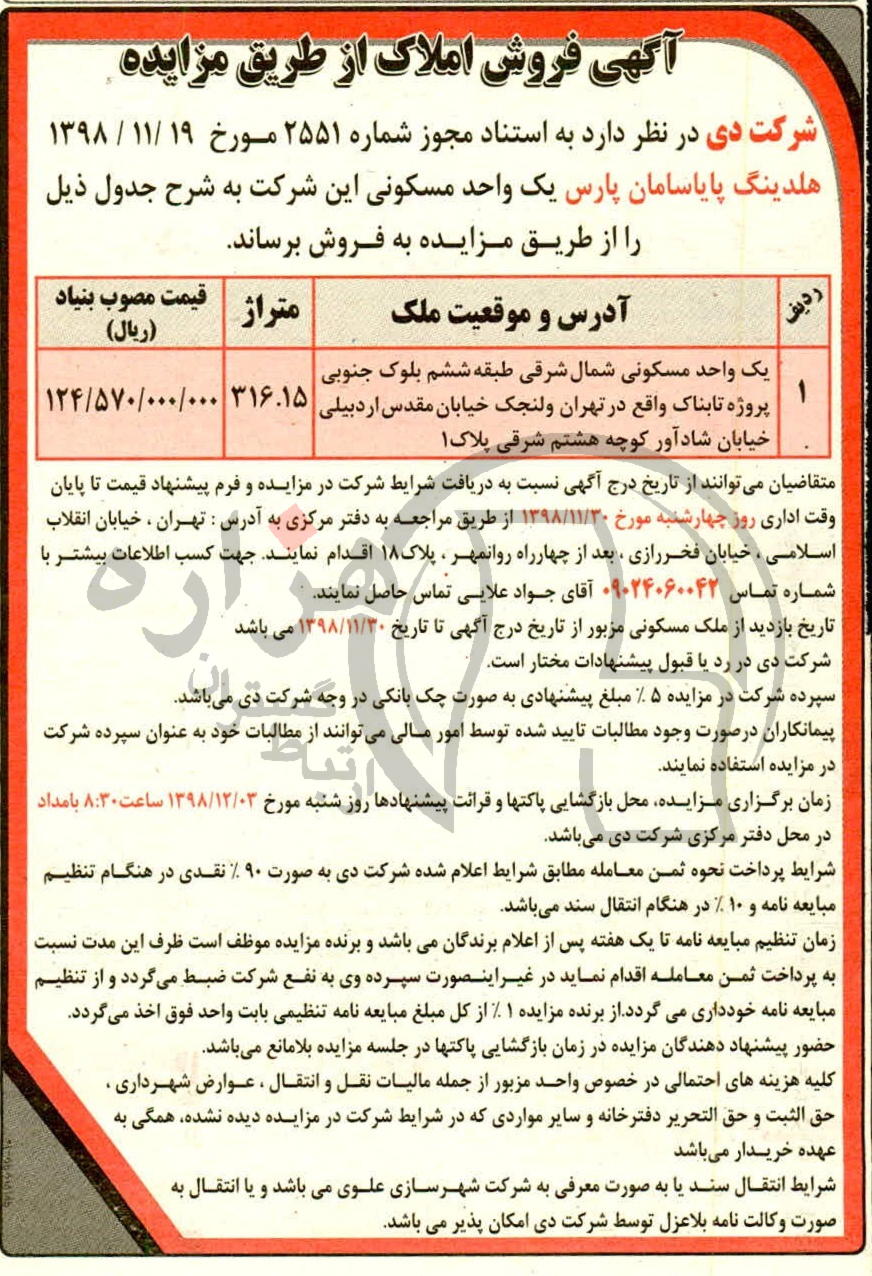 آگهی فروش املاک از طریق مزایده
شرکت دی در نظر دارد به استناد مجوز شماره ۲۵۵۱ مـورخ ۱۹ /۱۱ / ۱۳۹۸
هلدینگ پایاسامان پارس یک واحد مسکونی این شرکت به شرح جدول ذیل
را از طریـق مـزایـده به فـروش برساند.
ردیف
آدرس و موقعیت ملک
متراژ
قیمت مصوب بنیاد
(ریال)
۱
یک واحد مسکونی شمال شرقی طبقه ششم بلوک جنوبی
پروژه تابناک واقع در تهران ولنجک خیابان مقدس اردبیلی
خیابان شادآور کوچه هشتم شرقی پلاک۱
۳۱۶.۱۵
۱۲۴/۵۷۰/۰۰۰/۰۰۰
متقاضیان می‌توانند از تاریخ درج آگهی نسبت به دریافت شرایط شرکت در مزایـده و فرم پیشنهاد قیمت تا پایان
وقت اداری روز چهارشنبه مورخ ۱۳۹۸/۱۱/۳۰ از طریق مراجعـه به دفتر مرکزی به آدرس : تهـران ، خیابان انقلاب
اسـلامـی ، خیابان فخـررازی ، بعد از چهارراه روانمهـر ، پلاک۱۸ اقـدام نماینـد. جهت کسب اطلاعات بیشتـر با
شمـاره تمـاس ۰۹۰۲۴۰۶۰۰۴۲ آقای جـواد علایـی تماس حاصل نمایند.
تاریخ بازدید از ملک مسکونی مزبور از تاریخ درج آگهی تا تاریخ ۱۳۹۸/۱۱/۳۰ می باشد
شرکت دی در رد یا قبول پیشنهادات مختار است.
سپرده شرکت در مزایده ۵ ٪ مبلغ پیشنهادی به صورت چک بانکی در وجه شرکت دی می‌باشد.
پیمانکاران درصورت وجود مطالبات تایید شده توسط امور مـالی می‌توانند از مطالبات خود به عنوان سپرده شرکت
در مزایده استفاده نمایند.
زمان برگـزاری مـزایـده، محل بازگشایی پاکتها و قرائت پیشنهادها روز شنبه مورخ ۱۳۹۸/۱۲/۰۳ ساعت۸:۳۰ بامداد
در محل دفتر مرکزی شرکت دی می‌باشد.
شرایط پرداخت نحوه ثمـن معـامله مطابق شرایط اعلام شده شرکت دی به صورت ۹۰ ٪ نقـدی در هنگـام تنظیـم
مبایعه نامه و ۱۰ ٪ در هنگام انتقال سند می‌باشد.
زمان تنظیم مبایعه نامه تا یک هفته پس از اعلام برندگان می باشد و برنده مزایده موظف است ظرف این مدت نسبت
به پرداخت ثمـن معـاملـه اقدام نمـاید در غیـراینـصورت سپـرده وی به نفـع شرکت ضبـط می‌گردد و از تنظیـم
مبایعه نامه خودداری می گردد.از برنده مزایده ۱ ٪ از کل مبلغ مبایعه نامه تنظیمی بابت واحد فوق اخذ می‌گردد.
حضور پیشنهاد دهندگان مزایده در زمان بازگشایی پاکتها در جلسه مزایده بلامانع می‌باشد.
کلیه هزینه های احتمالی در خصوص واحـد مزبور از جمله مالیـات نقـل و انتقـال ، عـوارض شهـرداری ،
حق الثبت و حق التحریر دفترخانه و سایر مواردی که در شرایط شرکت در مزایـده دیده نشده، همگی به
عهده خریـدار می‌باشد
شرایط انتقـال سنـد یا به صورت معرفی به شرکت شهـرسـازی علـوی می باشد و یا انتقـال به
صورت وکالت نامه بلاعزل توسط شرکت دی امکان پذیر می باشد.
هزاره
گستران
ارتباط